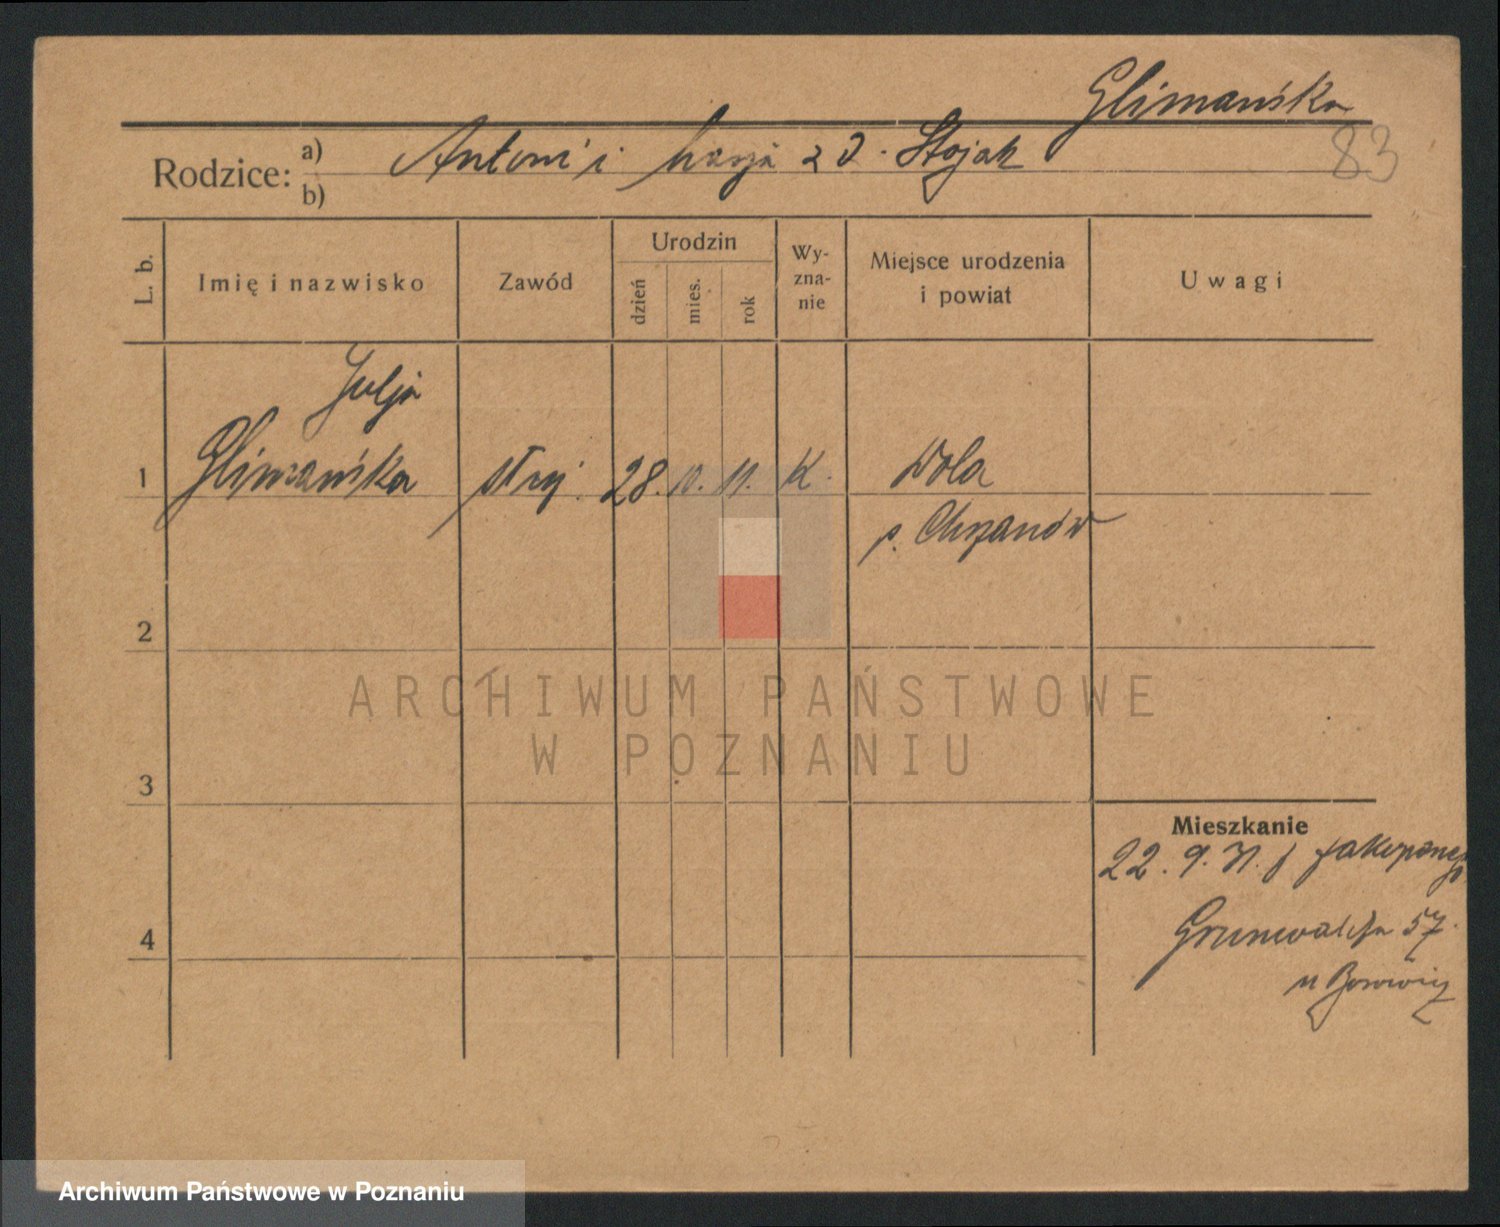 Glimańska
83
Rodzice: a) Antoni i Marja z d. Stojak
b)
L. b.
Imię i nazwisko
Zawód
Urodzin
dzień
mies.
rok
Wy-
zna-
nie
Miejsce urodzenia
i powiat
Uwagi
Julja
1 Glimańska służ. 28. 10. 11. K. Wola
p. Chrzanów
2
ARCHIWUM PAŃSTWOWE
W POZNANIU
3
Mieszkanie
22. 9. 31. z Zakopanego
4
Grunwaldzka 57.
u
Archiwum Państwowe w Poznaniu